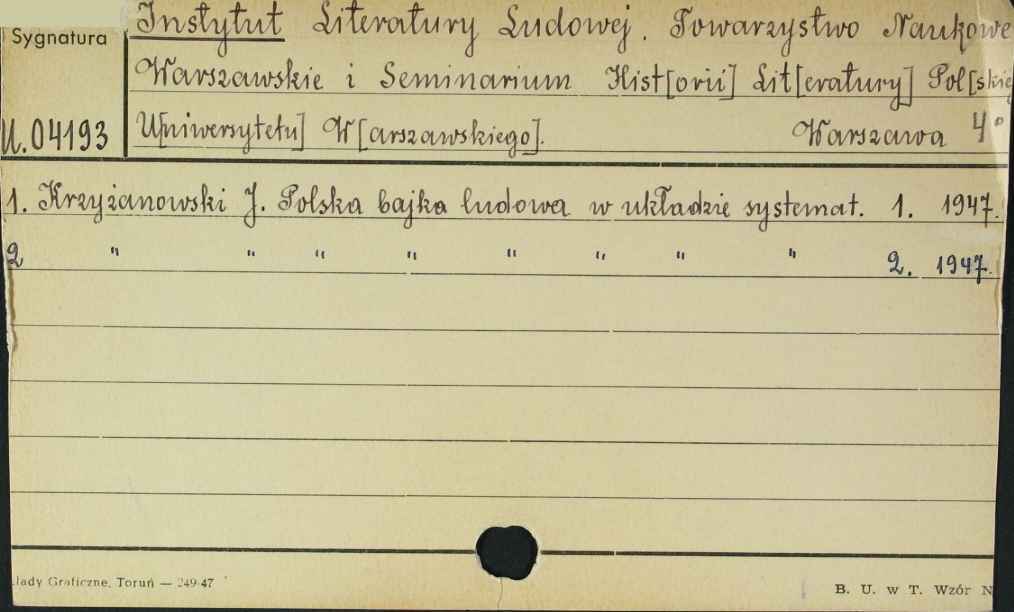 Sygnatura
Instytut Literatury Ludowej. Towarzystwo Naukowe
Warszawskie i Seminarium Hist[orii] Lit[eratury] Pol[skie
U.04193
U[niwersytetu] W[arszawskiego]. Warszawa 4°
1. Krzyżanowski J. Polska bajka ludowa w układzie systemat. 1. 1947.
2 " " " " " " " " 2. 1947.
łady Graficzne, Toruń — 249-47
B. U. w T. Wzór N